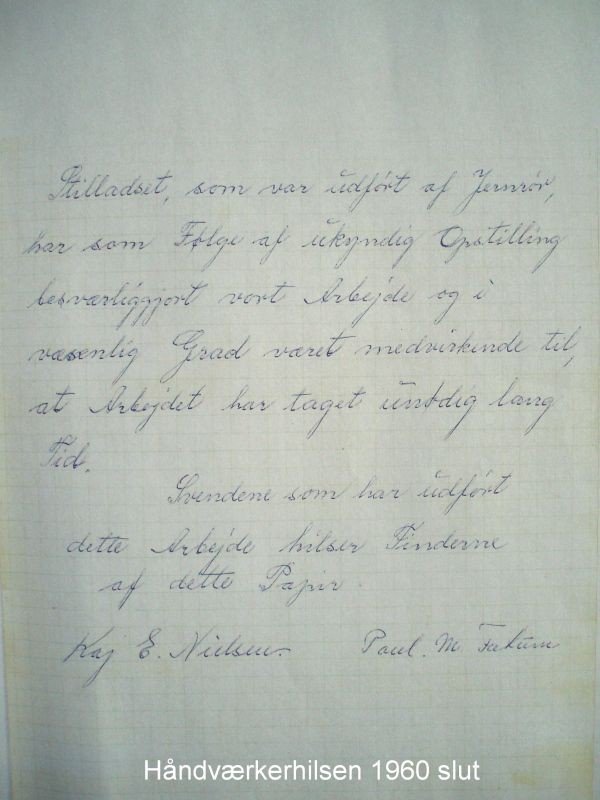 Stilladset, som var udført af Jernrör,
har som Følge af ukyndig Opstilling
besværliggjort vort Arbejde og i
væsenlig Grad været medvirkende til,
at Arbejdet har taget unödig lang
Tid.
Svendene som har udført
dette Arbejde hilser Finderne
af dette Papir.
Kaj E. Nielsen. Poul. M. Fatum
Håndværkerhilsen 1960 slut